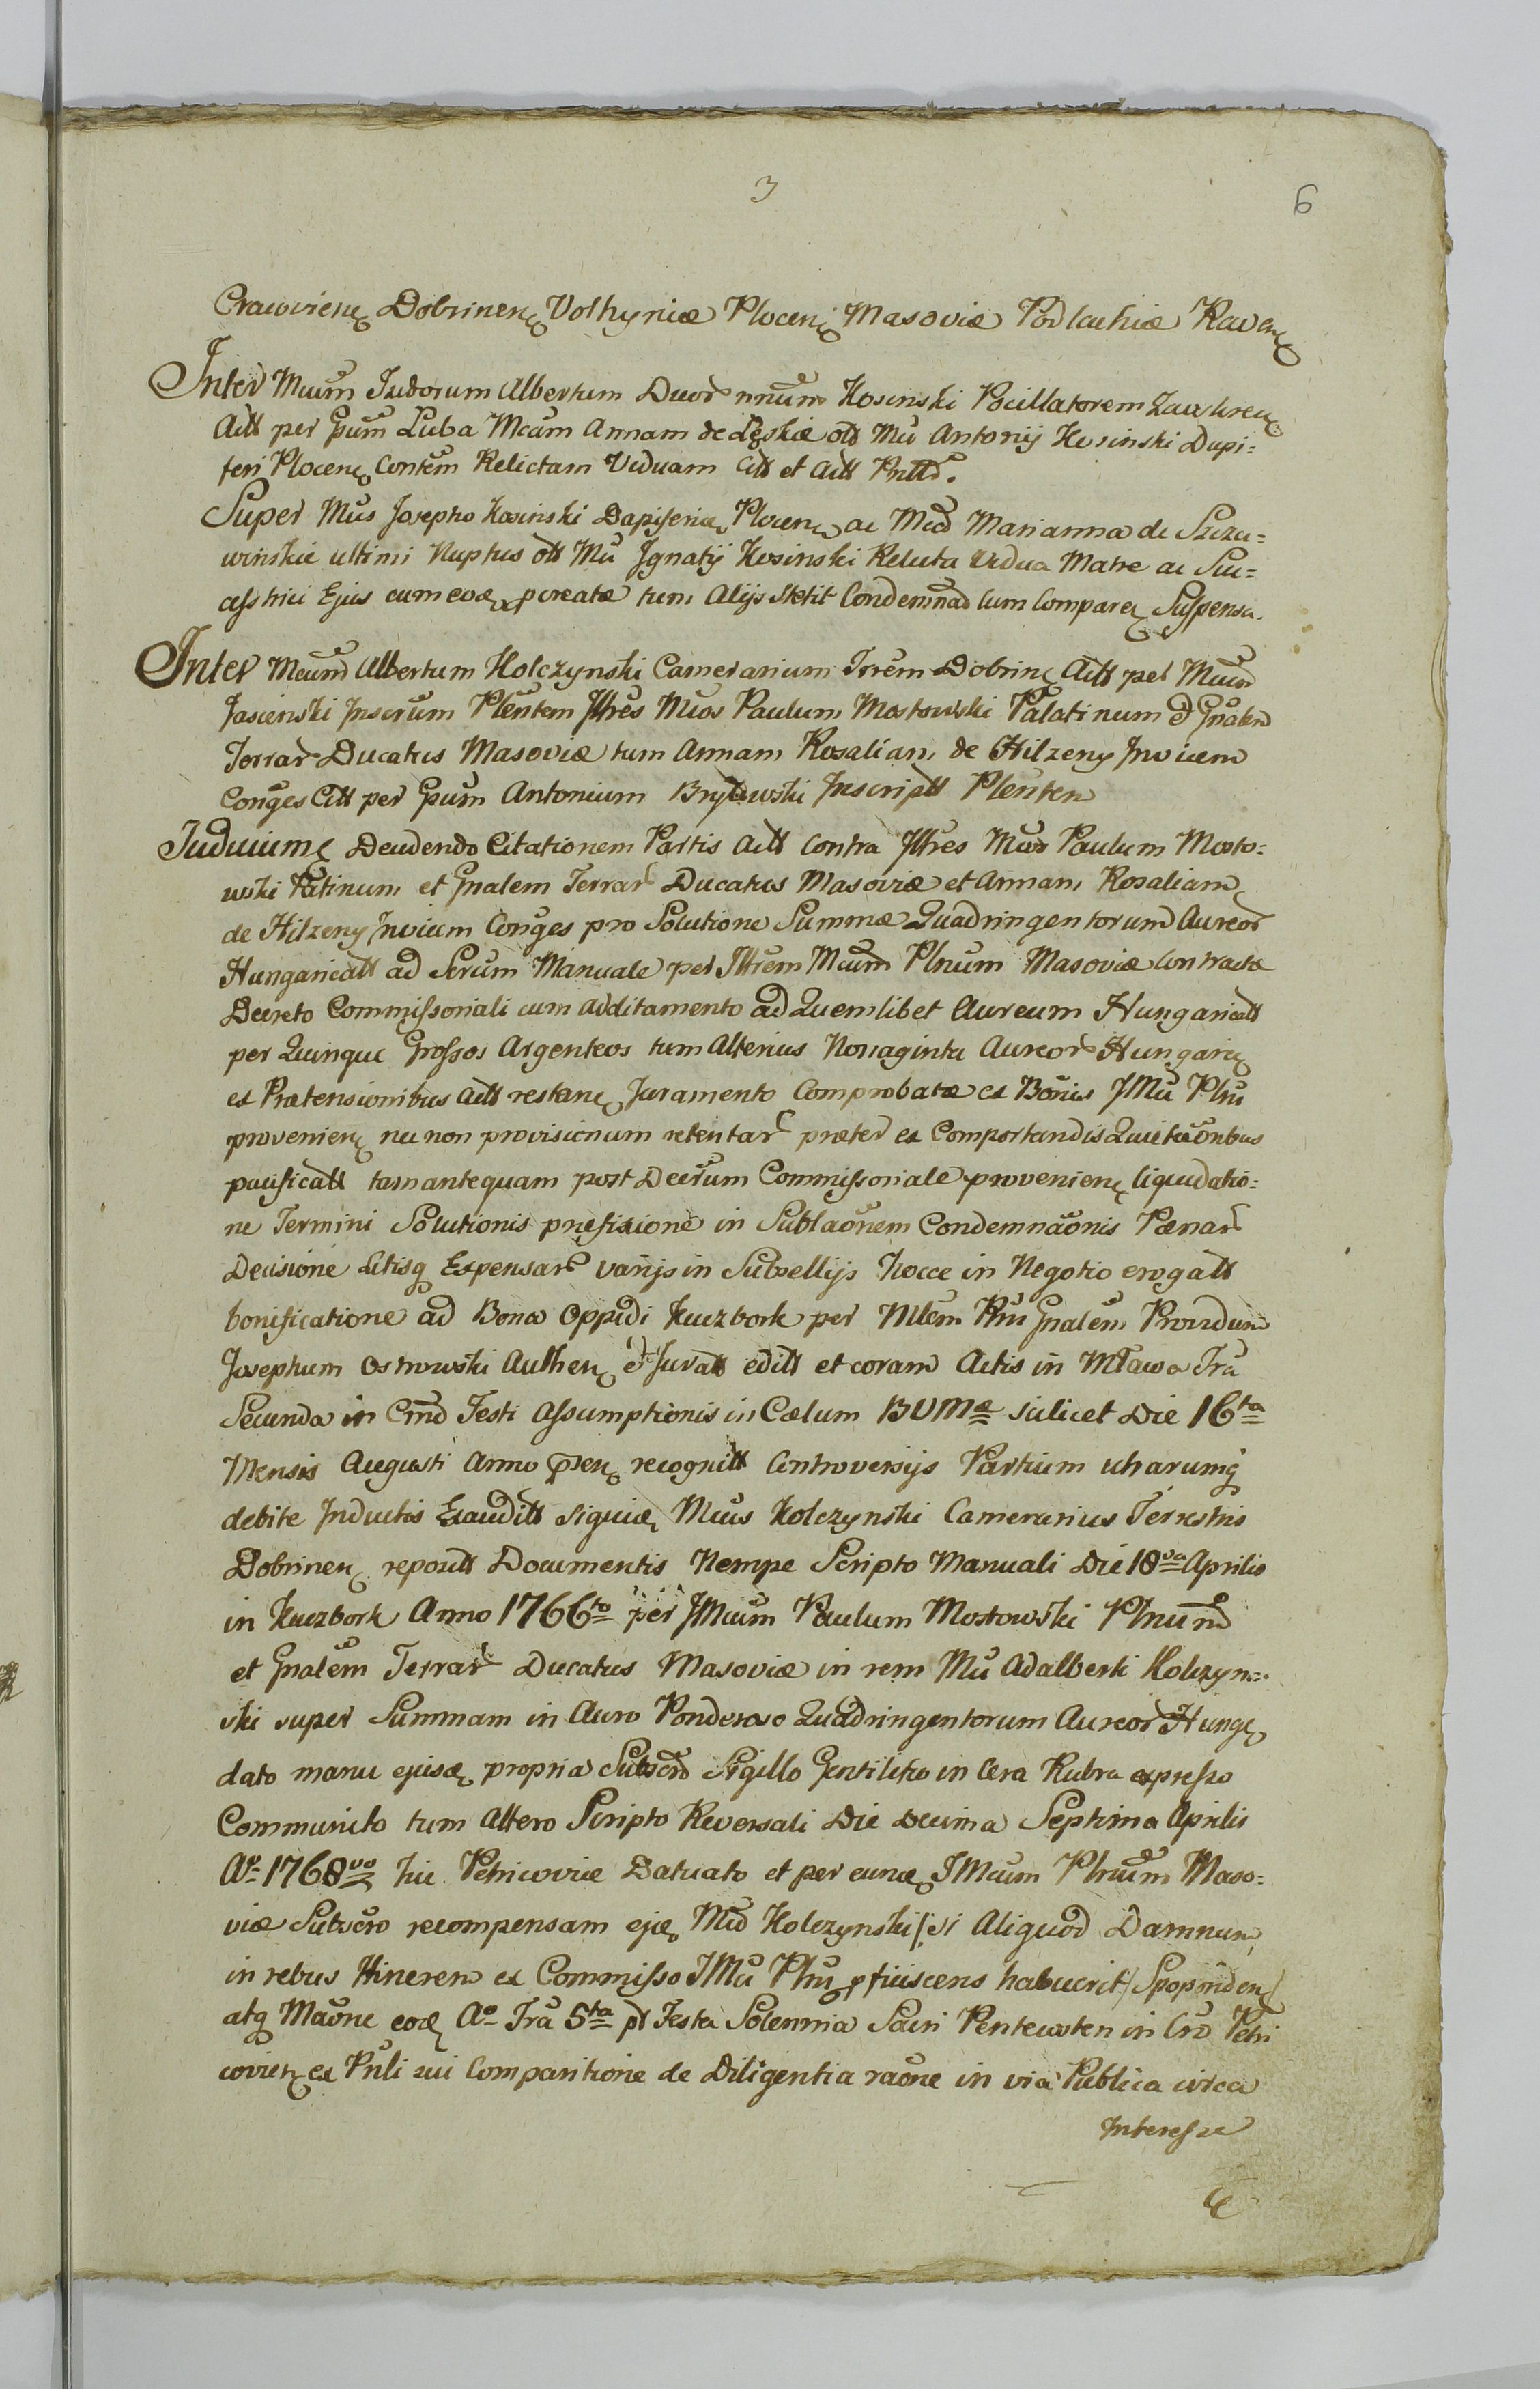 3
6
Cracovien Dobrinen Volhyniæ Plocen Masoviæ Podlachiæ Raven
Inter Mcum Isidorum Albertum Duor nnum Kosinski Pocillatorem Zawkren
Actt per Gsum Luba Mcam Annam de Leskie olt Mci Antonij Kosinski Dapi=
feri Plocen Contem Relictam Viduam Citt et Actt
Super Mcus Josepho Kosinski Dapiferida Plocen ac Mca Marianna de Szczu=
winskie ultimi Nuptus olt Mci Ignatij Kosinski Relicta Vidua Matre ac Suc=
cesstrici Ejus cum procreatæ tum Alijs Stetit Condemnao cum Comparen Suspensa.
Inter Mcum Albertum Kolczynski Camerarium Trrem Dobrin Actt per Mcum
Jasienski Inscrum Plentem Illres Mcos Paulum Mostowski Palatinum & Gnalem
Terrar Ducatus Masoviæ tum Annam Rosaliam de Hilzeny Invicem
Conges Citt per Gsum Antonium Inscriptt Plenten
Judicium Decidendo Citationem Partis Actt contra Illres Mcos Paulum Mosto=
wski Patinum et Gnalem Terrar Ducatus Masoviæ et Annam Rosaliam
de Hilzeny Invicem Conges pro Solutione Summæ Quadringentorum Aureor
Hungaricatt ad Scrum Manuale per Illrem Mcum Plnum Masoviæ Contractæ
Decreto Commissoriali cum additamento ad Quemlibet Aureum Hungaricatt
per Quinque Grossos Argenteos tum Alterius Nonaginta Aureor Hungaric
ex Prætensionibus Actt restan Juramento Comprobatæ ex Bonis JMci Plni
provenien nec non provisionum retentar præter ex Comportandis Quietaonbus
pacificatt tam antequam post Decrum Commissoriale provenien liquidatio=
ne Termini Solutionis præfixione in Sublaonem Condemnaonis Pænar
Decisione Litisq Expensar varijs in Subsellijs hocce in Negotio erogatt
bonificatione ad Bona Oppidi Kuczbork per Mlem Rni Gnalem Providum
Josephum Ostrowski Authen & Juratt editt et coram Actis in Mława Fra
Secunda in Cmo Festi Assumptionis in Cælum BVMæ scilicet Die 16ta
Mensis Augusti Anno præsen recognitt Controversijs Partium utrarumq
debite Inductis Exauditt Mcus Kolczynski Camerarius Terrestris
Dobrinen repositt Documentis Nempe Scripto Manuali Die 18va Aprilis
in Kuczbork Anno 1766to per JMcum Paulum Mostowski Plnum
et Gnalem Terrar Ducatus Masoviæ in rem Mci Adalberti Kolczyn=
ski super Summam in Auro Ponderoso Quadringentorum Aureor Hung
dato manu ejusd propria Subscro Sigillo Gentilitio in Cera Rubra expresso
Communito tum Altero Scripto Reversali Die Decima Septima Aprilis
Ao 1768vo hic Petricoviæ Datuato et per eund JMcum Plnum Maso=
viæ Subscro recompensam ejusd Mco Kolczynski /:si Aliquod Damnum
in rebus Itineren ex Commisso JMci Plni pficiscens habuerit/ Sposponden
atq Maone eod Ao Fra 5ta pt Festa Solennia Sacri Pentecosten in Cro Petri
covien ex Pnli sui Comparitione de Diligentia raone in via Publica circa
Interesse